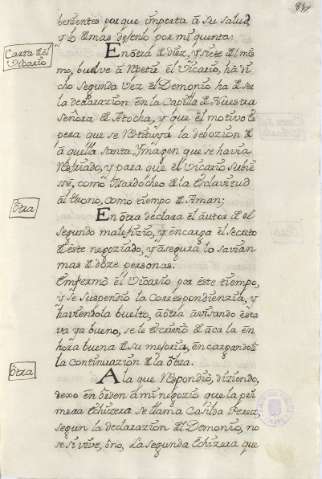 benientes porque importa â su Salud,
y lo demas dejenlo por mi quenta:
Carta del
Vicario
En otra de diez, y siete del mis
mo, buelve â repetir el Vicario, há di
cho segunda vez el Demonio ha de su
la declarazion en la Capilla de Nuestra
Señora de Atocha, y que el motivo es
para que se restituia la debozion de
â quella Santa Ymagen que se havia
resfriado, y para que el Vicario subie
sse, como Mardocheo de la Esclavitud
al trono, como tiempo de Aman;
Otra
En otra declara el autor del
segundo maleficio, y encarga el secreto
de este negoziado, y asegura lo savian
mas de doze personas.
Enfermó el Vicario por este tiempo,
y se suspendio la correspondienzia, y
haviendola buelto, â otra avisando estâ
va ya bueno, se le escrivió de acâ la en
hora buena de su mejoria, encargandole
la continuazion de la obra.
Otra
A la que respondio, diziendo,
dexo en orden â mi negozio que la pri
mera echizera se llama Casilda Perez,
segun la declarazion del Demonio, no
se si vive, ô no, la segunda echizera que